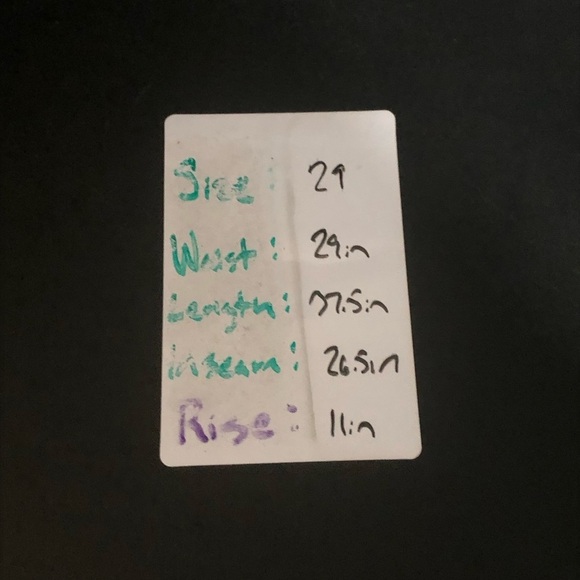 Size: 29
Waist: 29in
Length: 37.5in
Inseam: 26.5in
Rise: 11in